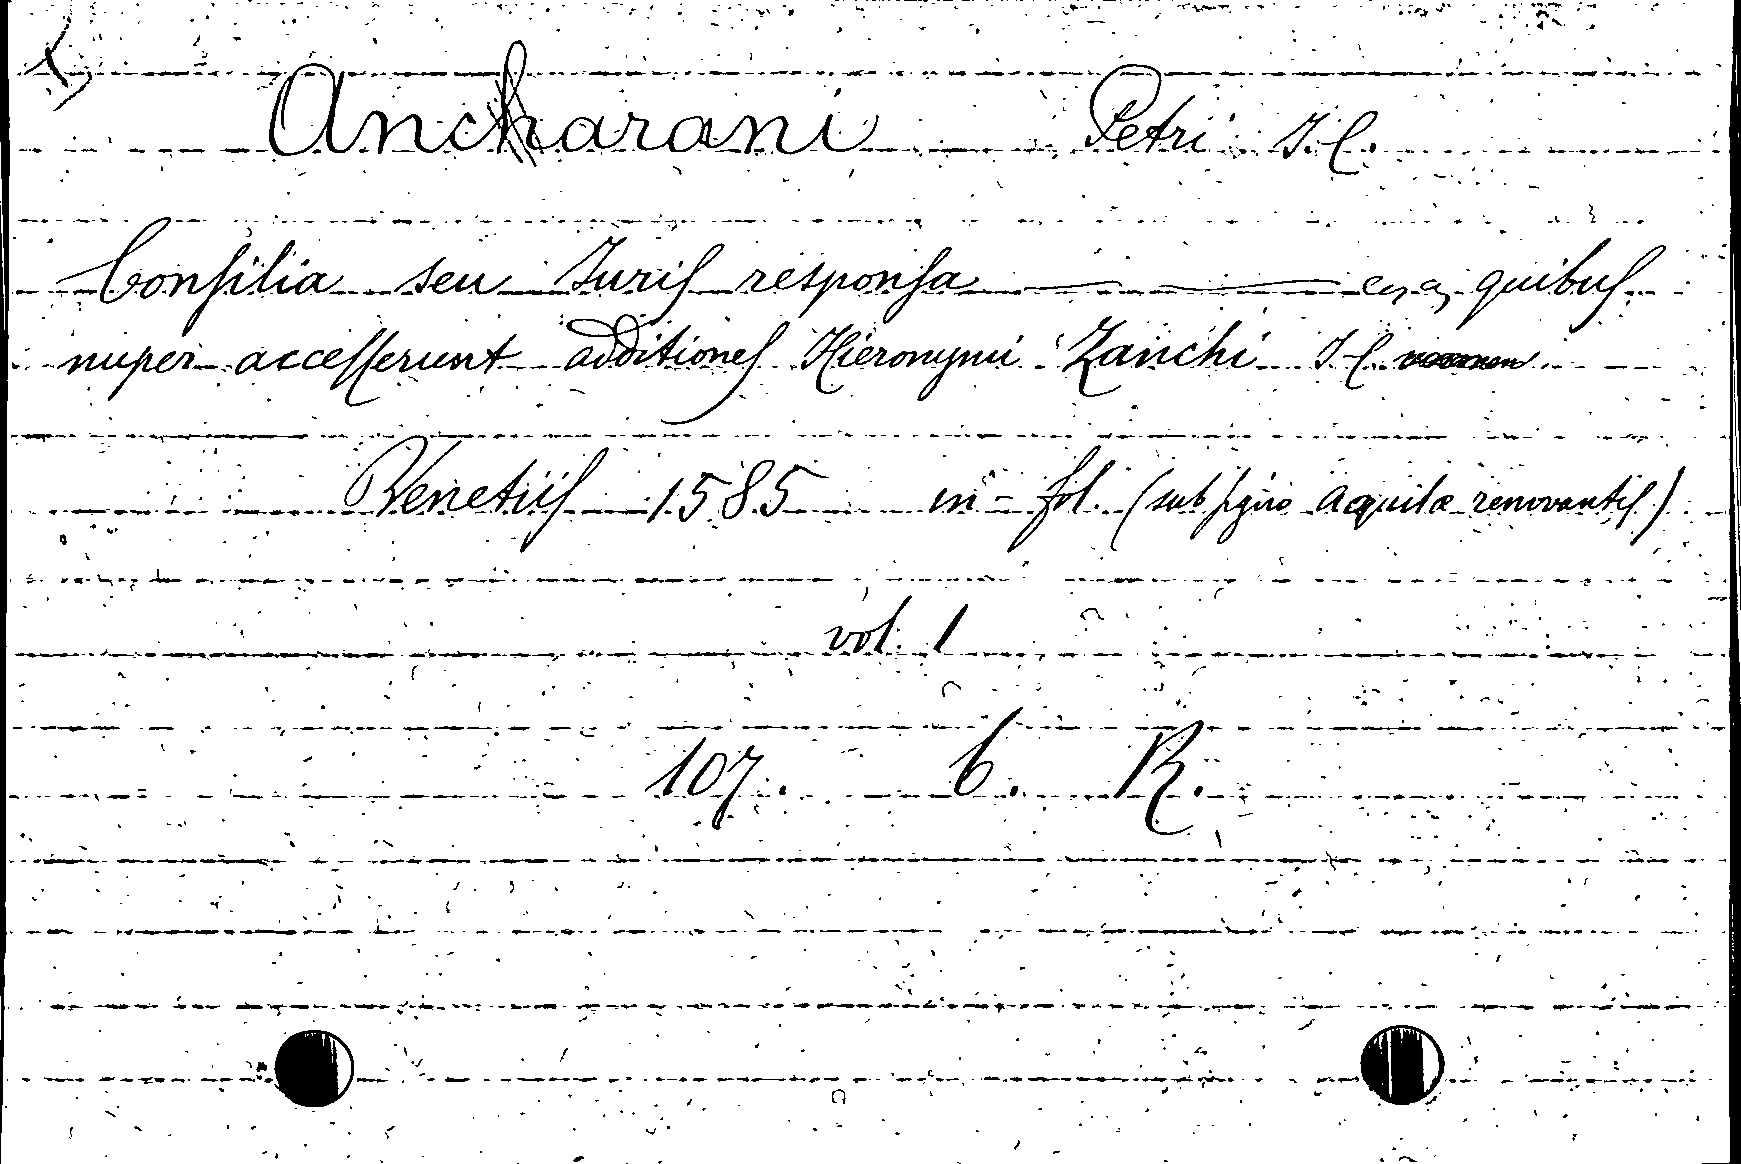 Ancharani Petri J. C.
Consilia seu Juris responsa quibus
nuper accesserunt additiones Hieronymi Zanchi J. C.
Venetiis 1585 in-fol. (sub signo Aquilæ renovantis)
vol. 1
107. 6. R.